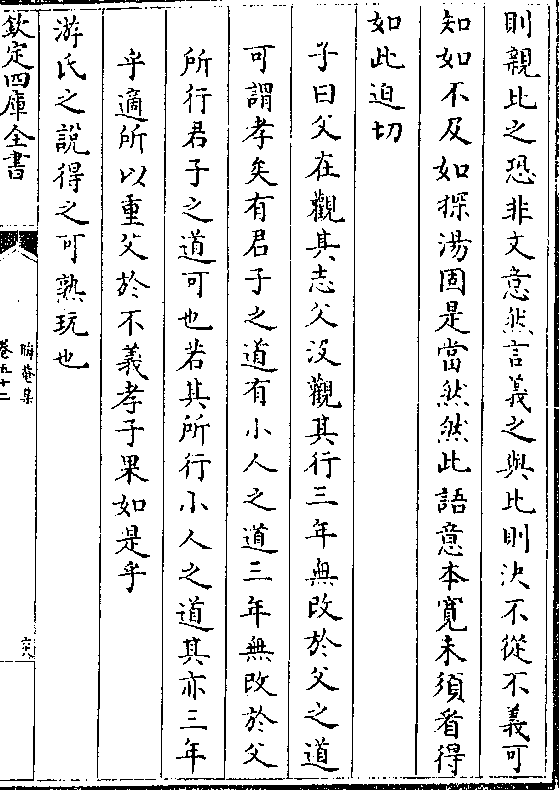 則親比之恐非文意然言義之與比則決不從不義可
知如不及如探湯固是當然然此語意本寛未須看得
如此迫切
子曰父在觀其志父沒觀其行三年無改於父之道
可謂孝矣有君子之道有小人之道三年無改於父
所行君子之道可也若其所行小人之道其亦三年
乎適所以重父於不義孝子果如是乎
游氏之說得之可熟玩也
欽定四庫全書
晦菴集
卷五十二